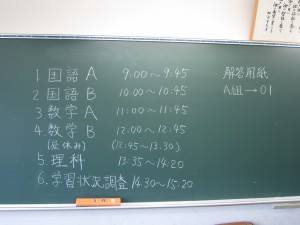 1 国語 A 9:00〜9:45
2 国語 B 10:00〜10:45
3 数学 A 11:00〜11:45
4. 数学 B 12:00〜12:45
(昼休み) (12:45〜13:30)
5 理科 13:35〜14:20
6. 学習状況調査 14:30〜15:20
解答用紙
A組→01